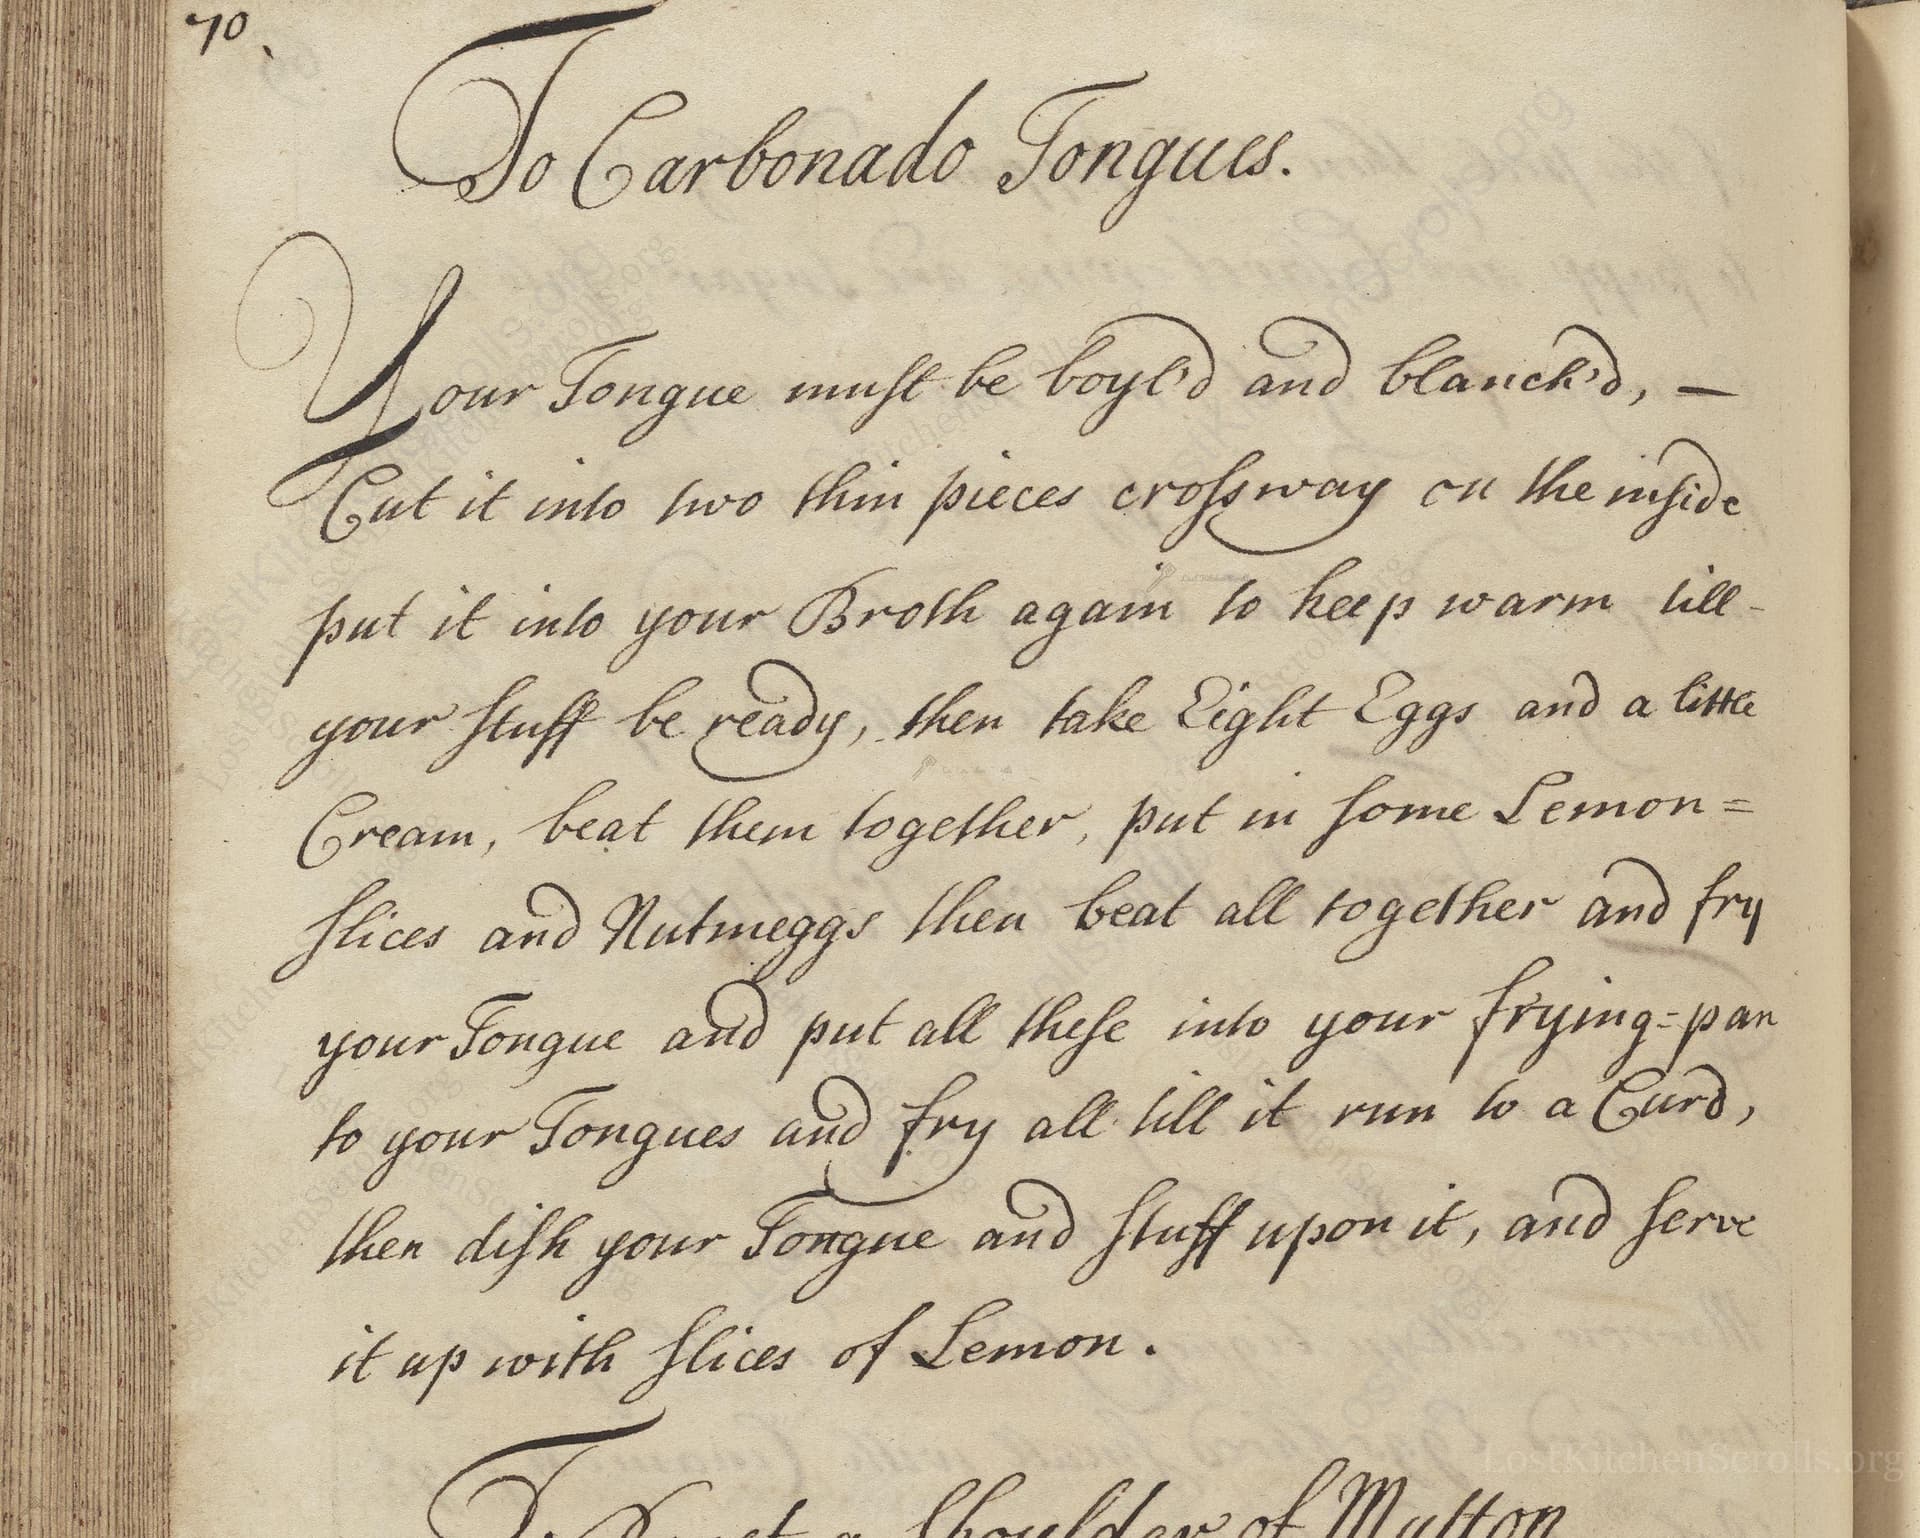 70.
To Carbonado Tongues.
Your Tongue muſt be boyl'd and blanck'd, —
Cut it into two thin pieces croſsway on the inſide
put it into your Broth again to keep warm till -
your ſtuff be ready, then take Eight Eggs and a little
Cream, beat them together, put in ſome Lemon=
ſlices and Nutmeggs then beat all together and fry
your Tongue and put all theſe into your frying=pan
to your Tongues and fry all till it run to a Curd,
then diſh your Tongue and ſtuff upon it, and ſerve
it up with ſlices of Lemon.
a ſhoulder of Mutton
LostKitchenScrolls.org